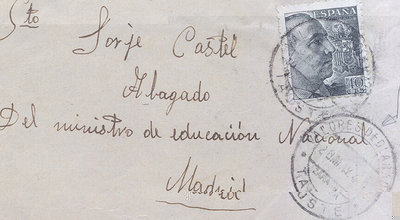 Sto
Jorje Castel
Abagado
Del ministro de educación Nacional
Madrid
ESPAÑA
TAUSTE